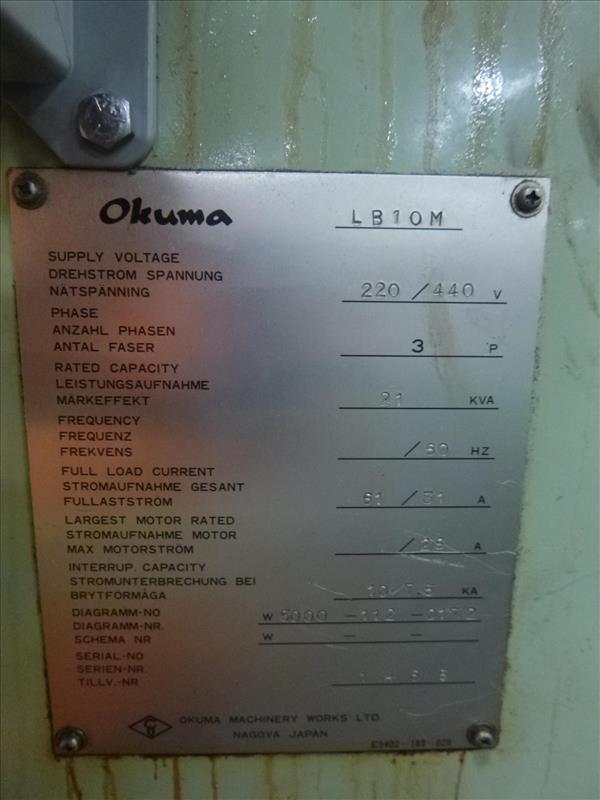 Okuma LB10M
SUPPLY VOLTAGE
DREHSTROM SPANNUNG
NÄTSPÄNNING 220 / 440 V
PHASE
ANZAHL PHASEN
ANTAL FASER 3 P
RATED CAPACITY
LEISTUNGSAUFNAHME
MÄRKEFFEKT KVA
FREQUENCY
FREQUENZ
FREKVENS /60 HZ
FULL LOAD CURRENT
STROMAUFNAHME GESANT
FULLASTSTRÖM A
LARGEST MOTOR RATED
STROMAUFNAHME MOTOR
MAX MOTORSTRÖM A
INTERRUP. CAPACITY
STROMUNTERBRECHUNG BEI
BRYTFÖRMÅGA KA
DIAGRAMM-NO W 5000 -112
DIAGRAMM-NR.
SCHEMA NR W - -
SERIAL-NO
SERIEN-NR.
TILLV.-NR
OKUMA MACHINERY WORKS LTD.
NAGOYA JAPAN